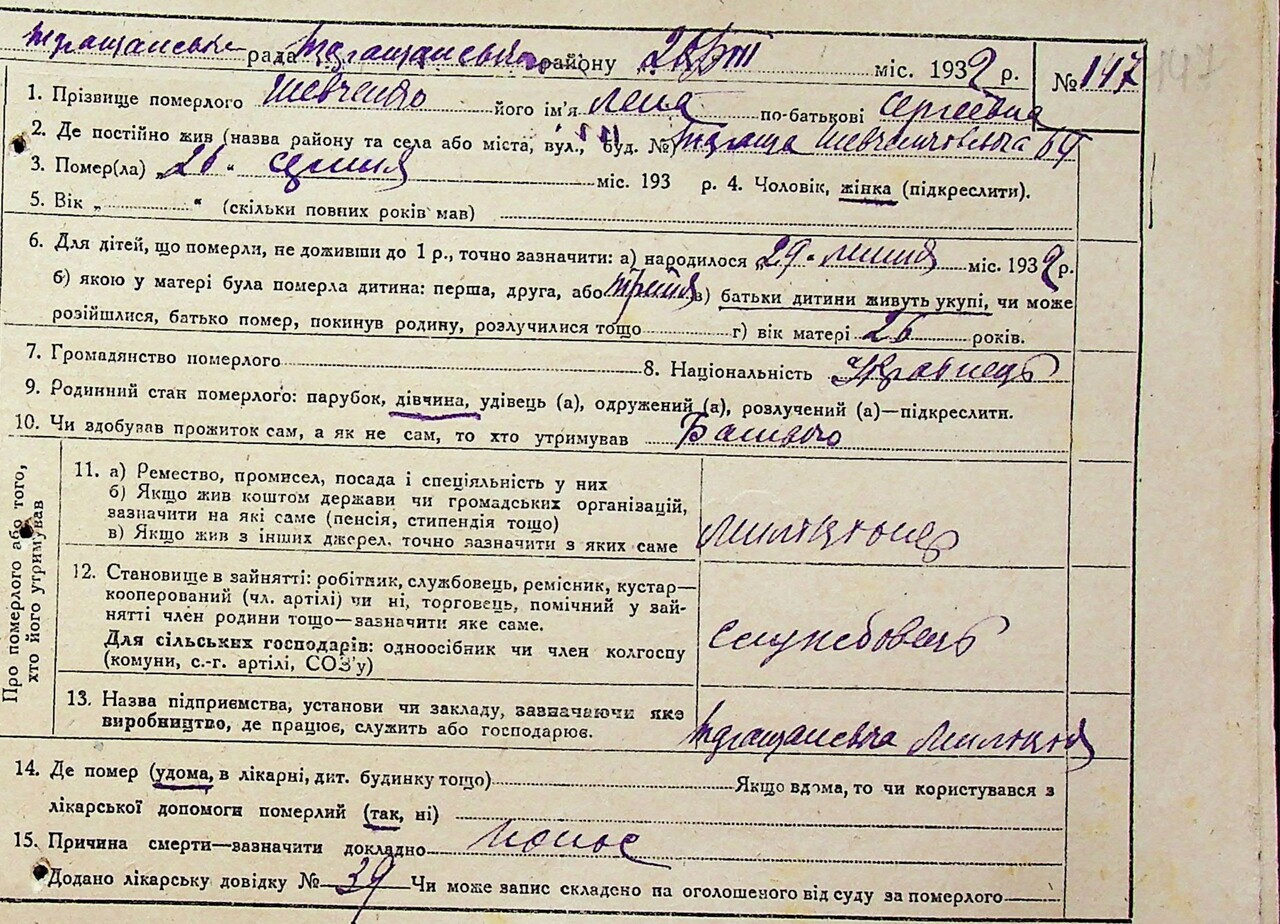 рада району 28/VIII міс. 1932 р. № 147
1. Прізвище померлого Шевченко його ім'я Лена по-батькові Сергеевна
2. Де постійно жив (назва району та села або міста, вул., буд. №) Шевченковська
3. Помер(ла) „ “ серпня міс. 193 р. 4. Чоловік, жінка (підкреслити).
5. Вік „ “ (скільки повних років мав)
6. Для дітей, що померли, не доживши до 1 р., точно зазначити: а) народилося „29“ липня міс. 1932 р.
б) якою у матері була померла дитина: перша, друга, або третя в) батьки дитини живуть укупі, чи може
розійшлися, батько помер, покинув родину, розлучилися тощо г) вік матері 26 років.
7. Громадянство померлого 8. Національність Украінець
9. Родинний стан померлого: парубок, дівчина, удівець (а), одружений (а), розлучений (а)—підкреслити.
10. Чи здобував прожиток сам, а як не сам, то хто утримував Батько
Про померлого або того,
хто його утримував
11. а) Ремество, промисел, посада і спеціяльність у них
б) Якщо жив коштом держави чи громадських організацій,
зазначити на які саме (пенсія, стипендія тощо)
в) Якщо жив з інших джерел, точно зазначити з яких саме
12. Становище в зайнятті: робітник, службовець, ремісник, кустар—
кооперований (чл. артілі) чи ні, торговець, помічний у зай-
нятті член родини тощо—зазначити яке саме.
Для сільських господарів: одноосібник чи член колгоспу
(комуни, с.-г. артілі, СОЗ'у)
службовець
13. Назва підприємства, установи чи закладу, зазначаючи яке
виробництво, де працює, служить або господарює.
14. Де помер (удома, в лікарні, дит. будинку тощо) Якщо вдома, то чи користувався з
лікарської допомоги померлий (так, ні)
15. Причина смерти—зазначити докладно понос
Додано лікарську довідку № 39 Чи може запис складено на оголошеного від суду за померлого